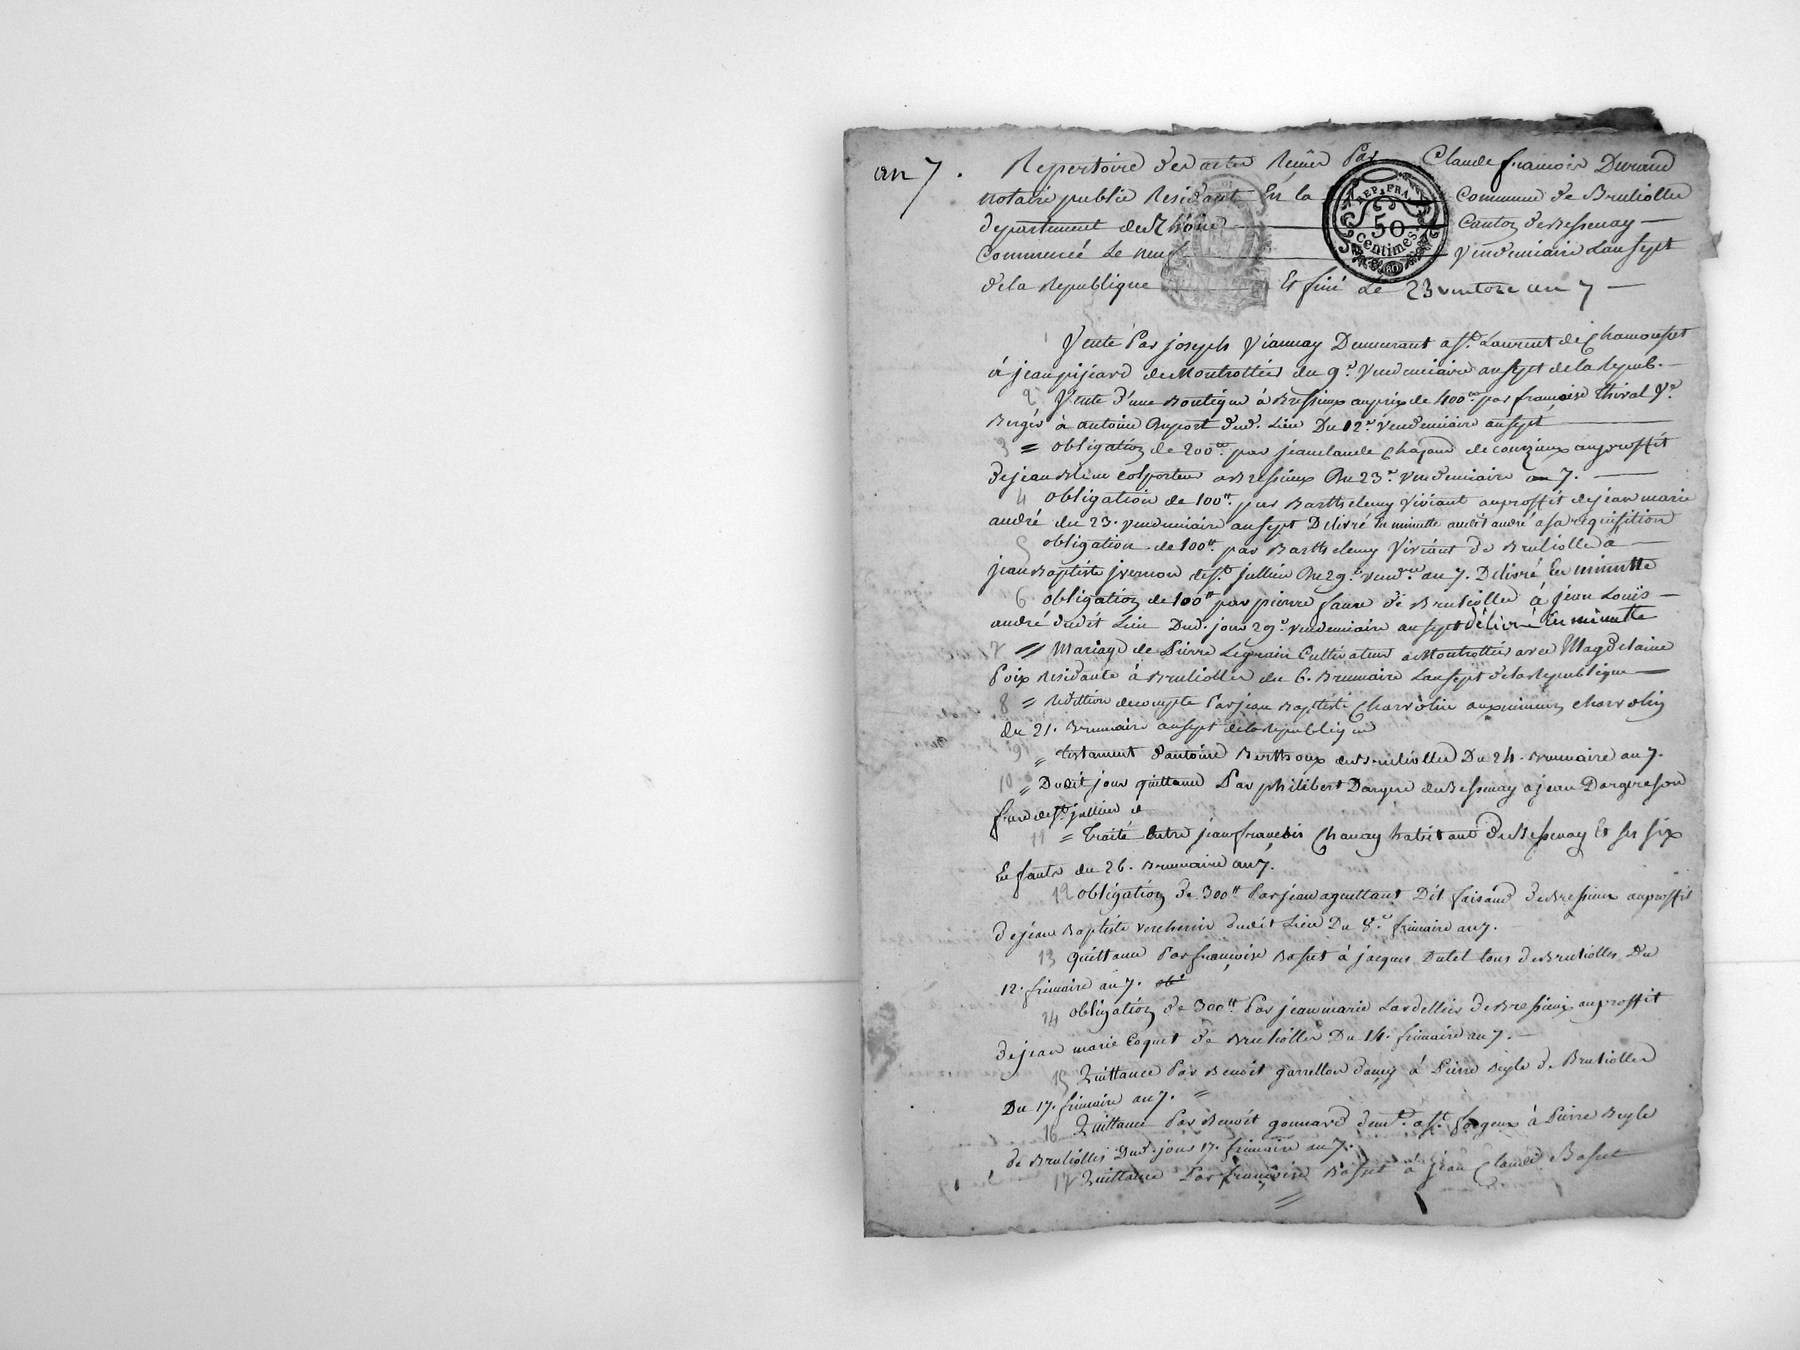 an 7.
Repertoire des actes Reçus Par Claude françois Durand
notaire public Residant En la Commune de Brulioles
departement du Rhône Canton de Bessenay
Commencé Le neuf Vendemiaire Lan sept
de la Republique Et fini Le 23 ventose an 7
REP. FRA.
50
centimes
1 Vente Par joseph Viannay Demeurant a St. Laurent de Chamousset
à jean pijard de Montrottier du 9e. Vendemiaire an sept de la repub.
2 Vente d'une Boutique à Bressieux au prix de 400tt par françoise thival Ve.
Berger à antoine dud. Lieu Du 12e. Vendemiaire an sept
3 = obligation de 200tt par jean claude de Courzieux au proffit
de jean colporteur a Bressieux Du 23e. Vendemiaire an 7.
4 obligation de 100tt. par Barthelemy Viviant au proffit de jean marie
andré du 23. vendemiaire an sept Délivré En minutte audit andré a sa requisition
5 obligation de 100tt. par Barthelemy Viviant de Bruliolles a
jean Baptiste jvernon de St. jullien Du 29e. vendre. an 7. Délivré En minutte
6 obligation de 100tt par pierre faure de Bruliolles à jean Louis
andré dudit Lieu Dud. jour 29e. vendemiaire an sept délivré En minutte
= Mariage de Pierre Legrain Cultivateur a Montrottier avec Magdelaine
Poix Residante à Bruliolles du 6. Brumaire Lan sept de la Republique
8 = Reddition de compte Par jean Baptiste Charvolin aux mineurs charvolin
du 21. Brumaire an sept de la Republique
= testament d'antoine Berthoux de Bruliolles Du 24. Brumaire an 7.
10 = Dudit jour quittance Par philibert Dargere de Bessenay a jean Dargere son
frere de St. jullien
11 = Traité Entre jean françois Chavay habitant de Bessenay Et ses six
Enfants du 26. Brumaire an 7.
12 obligation de 300tt Par jean aguettant Dit faisand de Bressieux au proffit
de jean Baptiste vercherin dudit Lieu Du 8e. frimaire an 7.
13 quittance Par françoise Basset à jacques Dutel tous de Bruliolles Du
12. frimaire an 7.
14 obligation de 300tt Par jean marie Lardellier de Bressieux au proffit
de jean marie Coquet de Bruliolles Du 14. frimaire an 7.
15 Quittance Par Benoit garrellon dancy à Pierre Beyle de Bruliolles
Du 17. frimaire an 7. =
16 Quittance Par Benoit gonnard demt. a St. forgeux à Pierre Beyle
de Bruliolles Dud. jour 17. frimaire an 7.
17 Quittance Par françoise Basset à jean Claude Basset